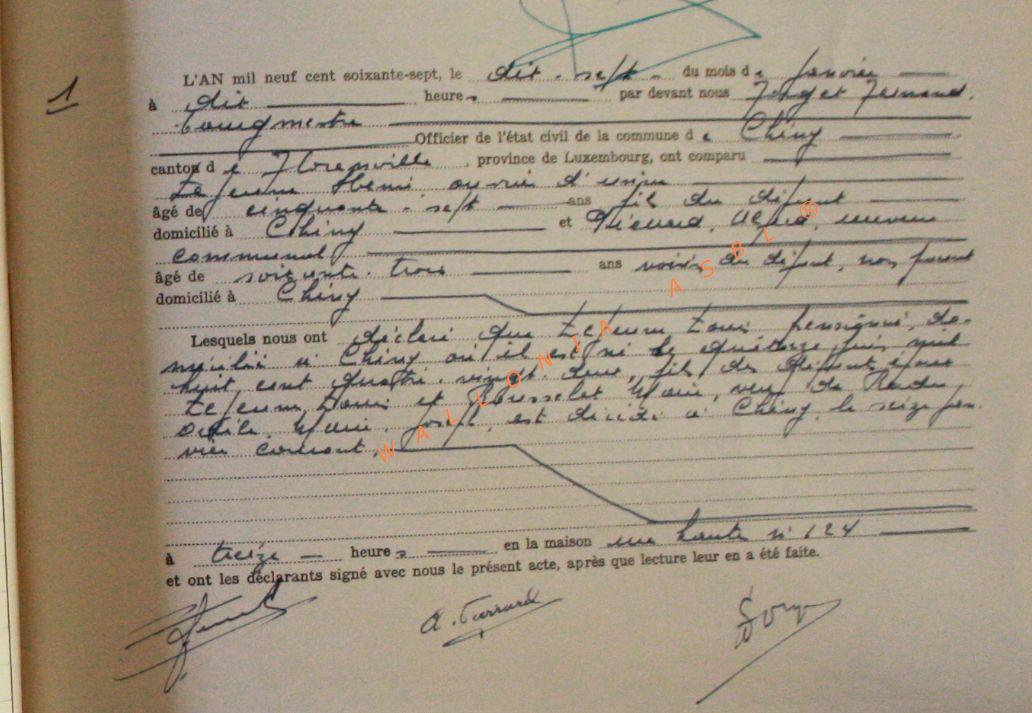 1
L'AN mil neuf cent soixante-sept, le dix-sept du mois de janvier
à dix heures par devant nous Forget Fernand,
bourgmestre
Officier de l'état civil de la commune de Chiny
canton de Florenville, province de Luxembourg, ont comparu
Lejeune Henri ouvrier d'usine
âgé de cinquante-sept ans fils du défunt
domicilié à Chiny et Pierrard, ouvrier
communal
âgé de soixante-trois ans voisin du défunt, non parent
domicilié à Chiny
Lesquels nous ont déclaré que Lejeune Louis pensionné, do-
micilié à Chiny où il est né le quatorze juin mil
huit cent quatre-vingt-deux, fils des défunts époux
Lejeune, Louis et Rousselet Marie, veuf de
Odile Marie Joseph, est décédé à Chiny le seize jan-
vier courant
à treize heures en la maison rue haute n° 124
et ont les déclarants signé avec nous le présent acte, après que lecture leur en a été faite.
A. Pierrard
WALLONIA ASBL ®